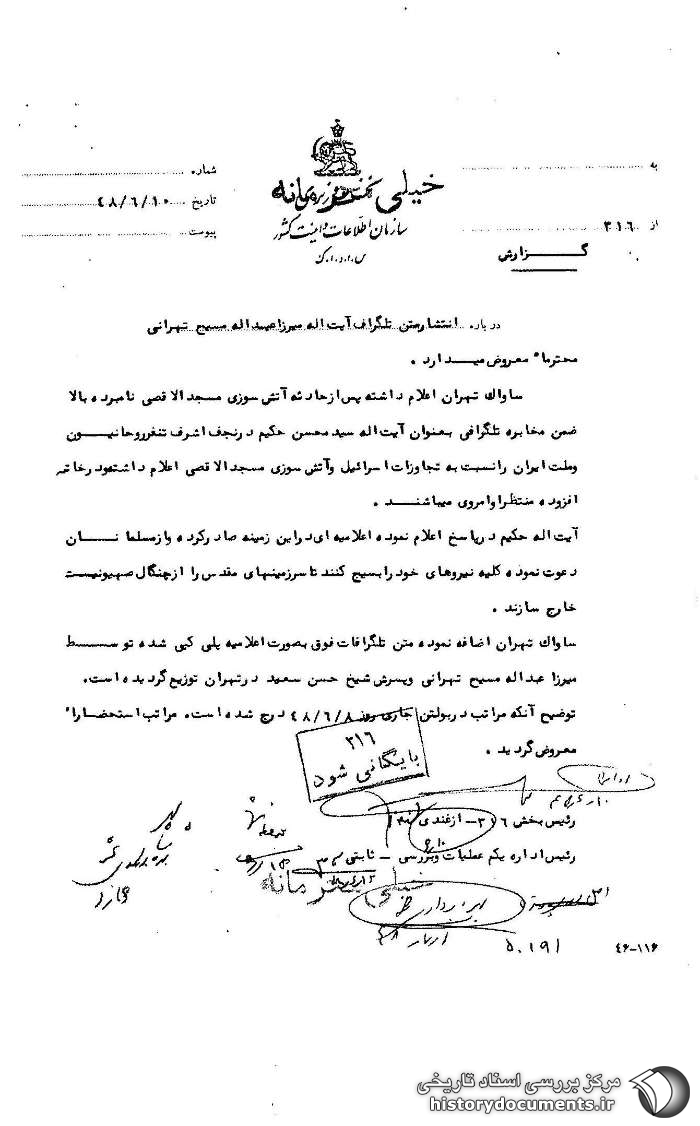 به
شماره
خیلی محرمانه
نخست وزیری
تاریخ ۴۸/۶/۱۰
سازمان اطلاعات و امنیت کشور
از ۳۱۶
پیوست
س.ا.و.ا.ک
گـــزارش
درباره انتشار متن تلگراف آیت اله میرزا عبداله مسیح تهرانی
محترما" معروض میدارد .
ساواك تهران اعلام داشته پس از حادثه آتش سوزی مسجد الاقصی نامبرده بالا
ضمن مخابره تلگرافی بعنوان آیت اله سید محسن حکیم در نجف اشرف تنفر روحانیون
وملت ایران را نسبت به تجاوزات اسرائیل وآتش سوزی مسجد الاقصی اعلام داشته ودر خاتمه
افزوده منتظر اوامروی میباشند .
آیت اله حکیم در پاسخ اعلام نموده اعلامیه ای در این زمینه صادر کرده و از مسلمانان
دعوت نموده کلیه نیروهای خود را بسیج کنند تا سرزمینهای مقدس را از چنگال صهیونیست
خارج سازند .
ساواك تهران اضافه نموده متن تلگرافات فوق بصورت اعلامیه پلی کپی شده توسط
میرزا عبداله مسیح تهرانی وپسرش شیخ حسن سعید در تهران توزیع گردیده است.
توضیح آنکه مراتب در بولتن جاری روز ۴۸/۶/۸ درج شده است. مراتب استحضارا"
معروض گردید .
۳۱۶
بایگانی شود
رئیس بخش ۳۱۶ - ازغندی
رئیس اداره یکم عملیات وبررسی - ثابتی
خیلی محرمانه
بهره برداری
۵۰۱۹۱
۴۶-۱۱۶
مرکز بررسی اسناد تاریخی
historydocuments.ir